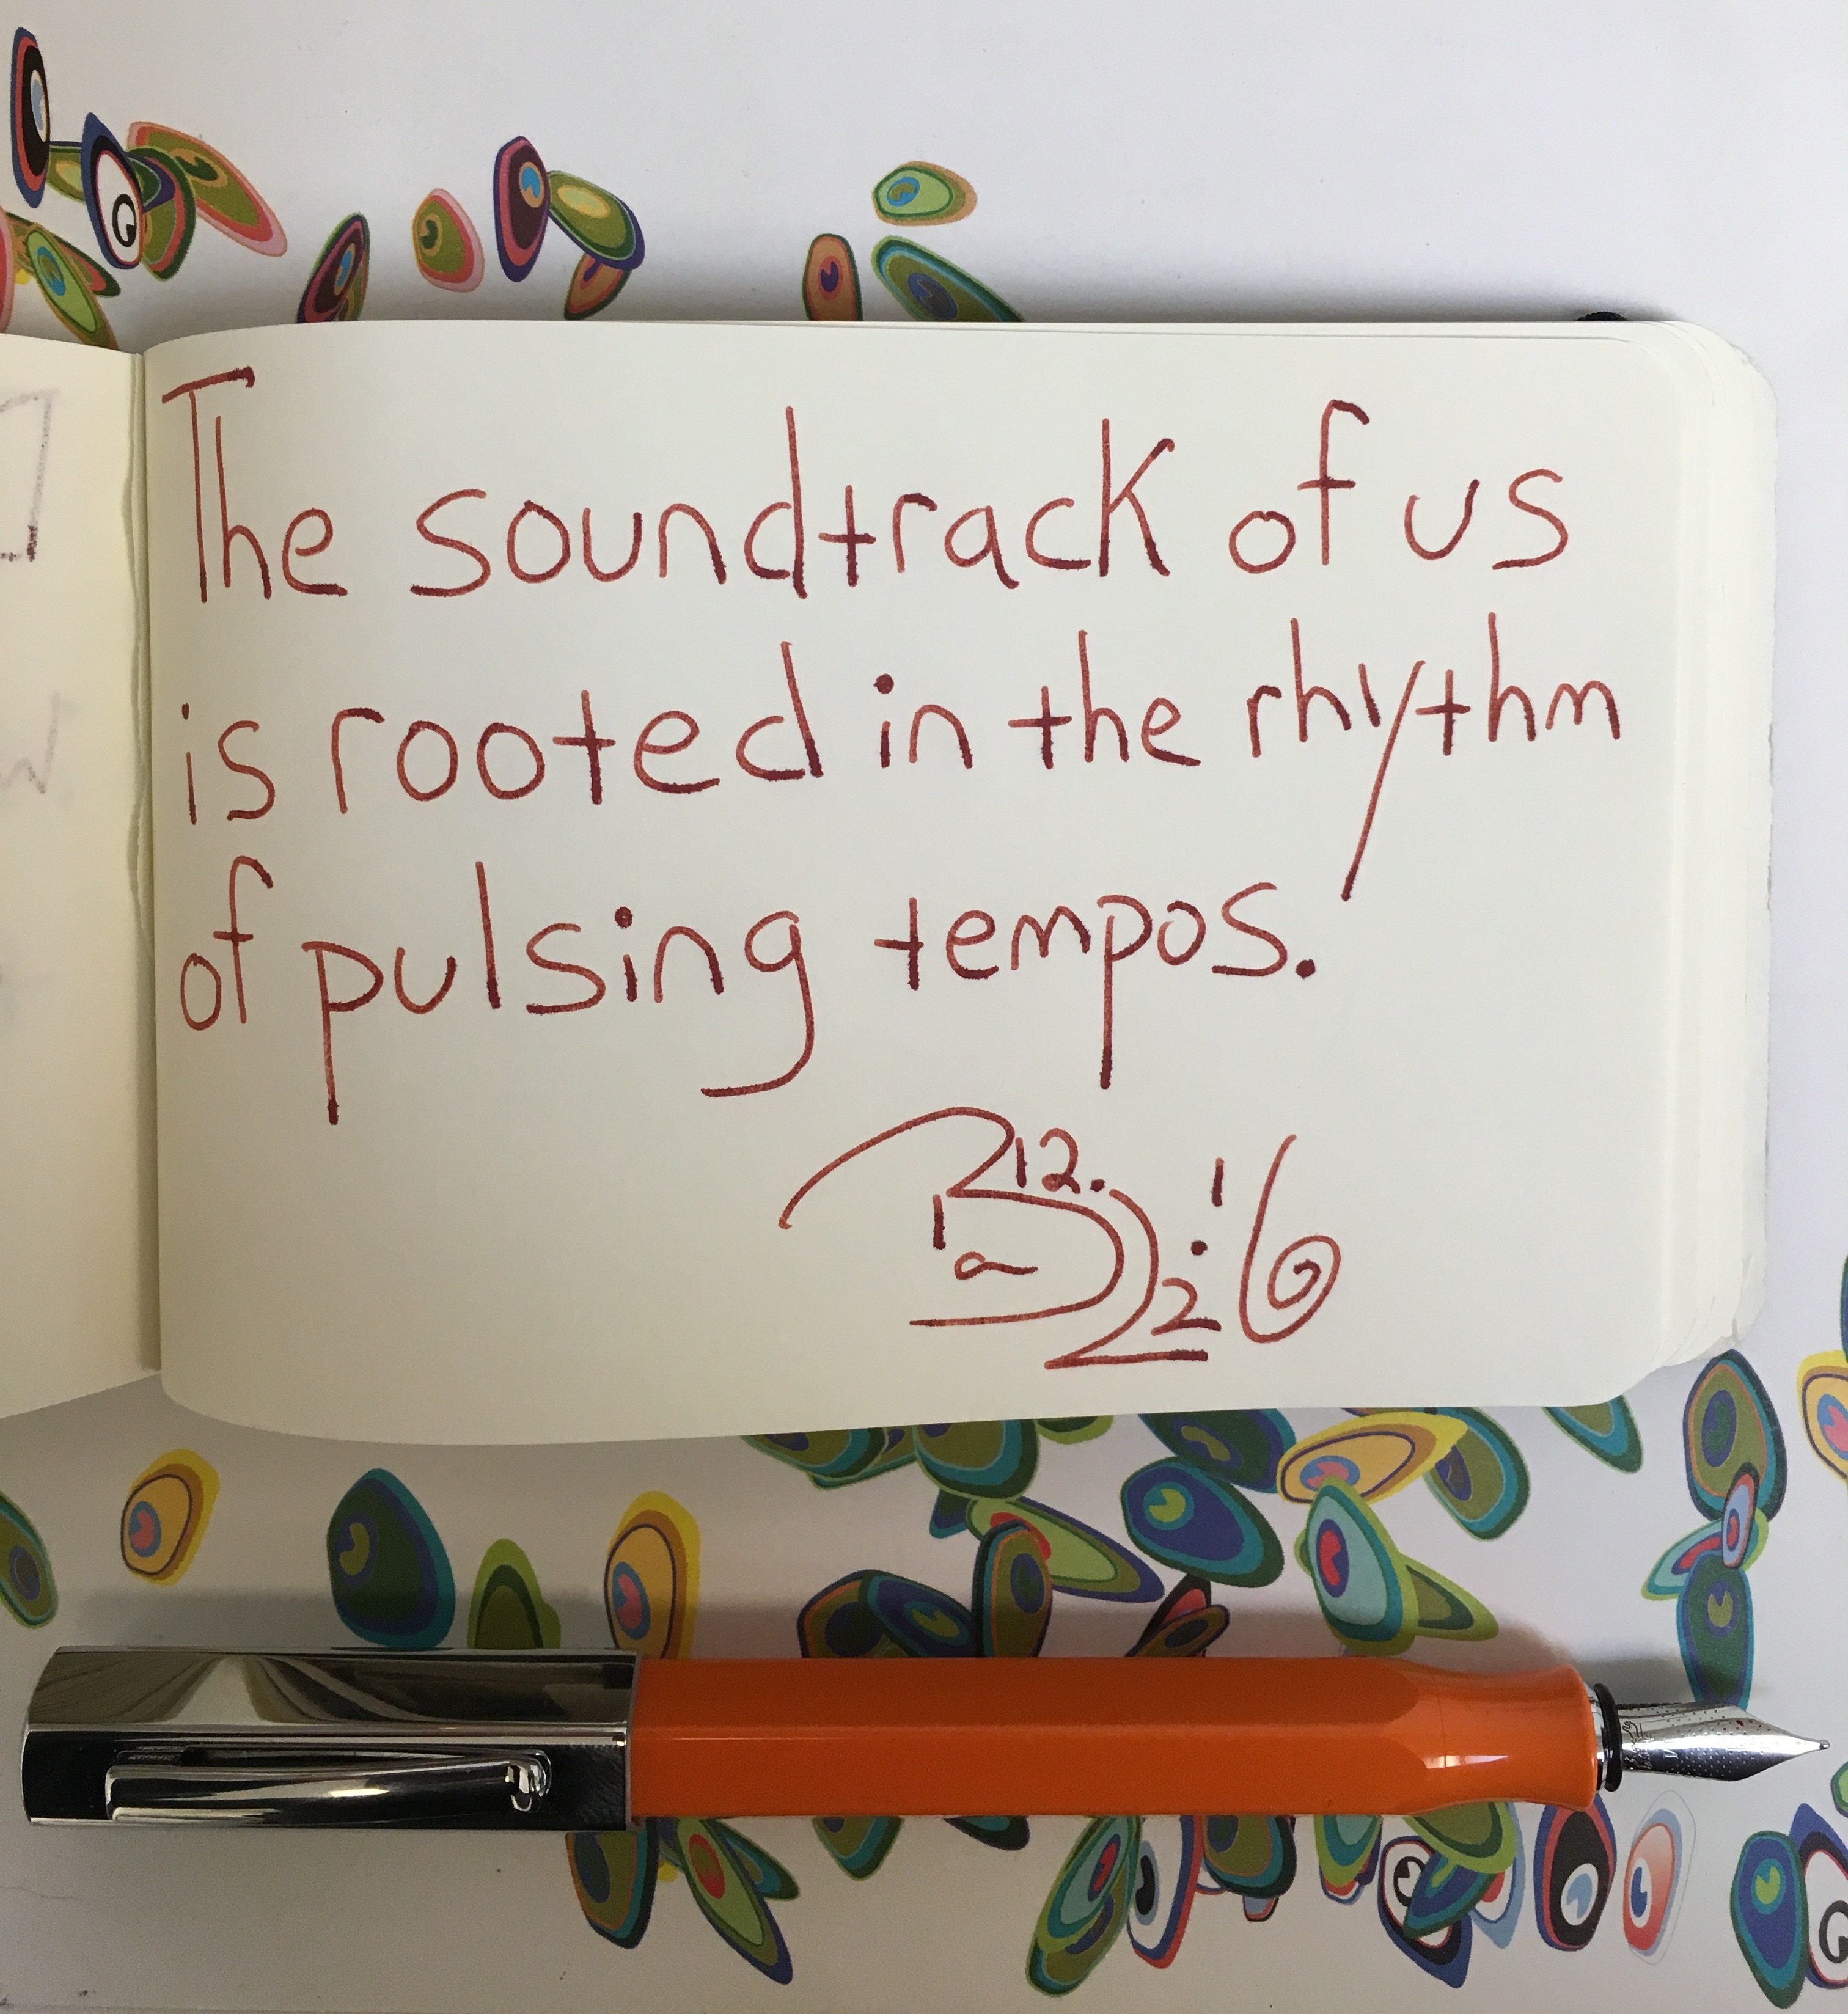 The soundtrack of us
is rooted in the rhythm
of pulsing tempos.
12.
2
'6